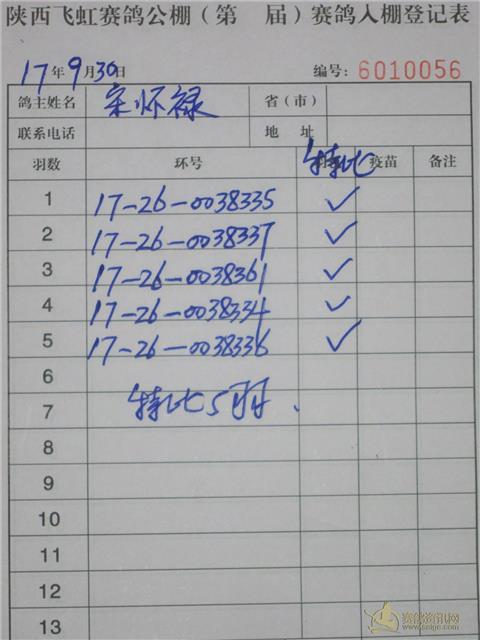 陕西飞虹赛鸽公棚（第 届）赛鸽入棚登记表
17年9月30日 编号：6010056
鸽主姓名 宋怀禄 省（市）
联系电话 地 址
羽数 环号 特比 疫苗 备注
1 17-26-0038335 ✓
2 17-26-0038337 ✓
3 17-26-0038361 ✓
4 17-26-0038334 ✓
5 17-26-0038336 ✓
6
7 特比5羽.
8
9
10
11
12
13
赛鸽资讯网
www.saige.com